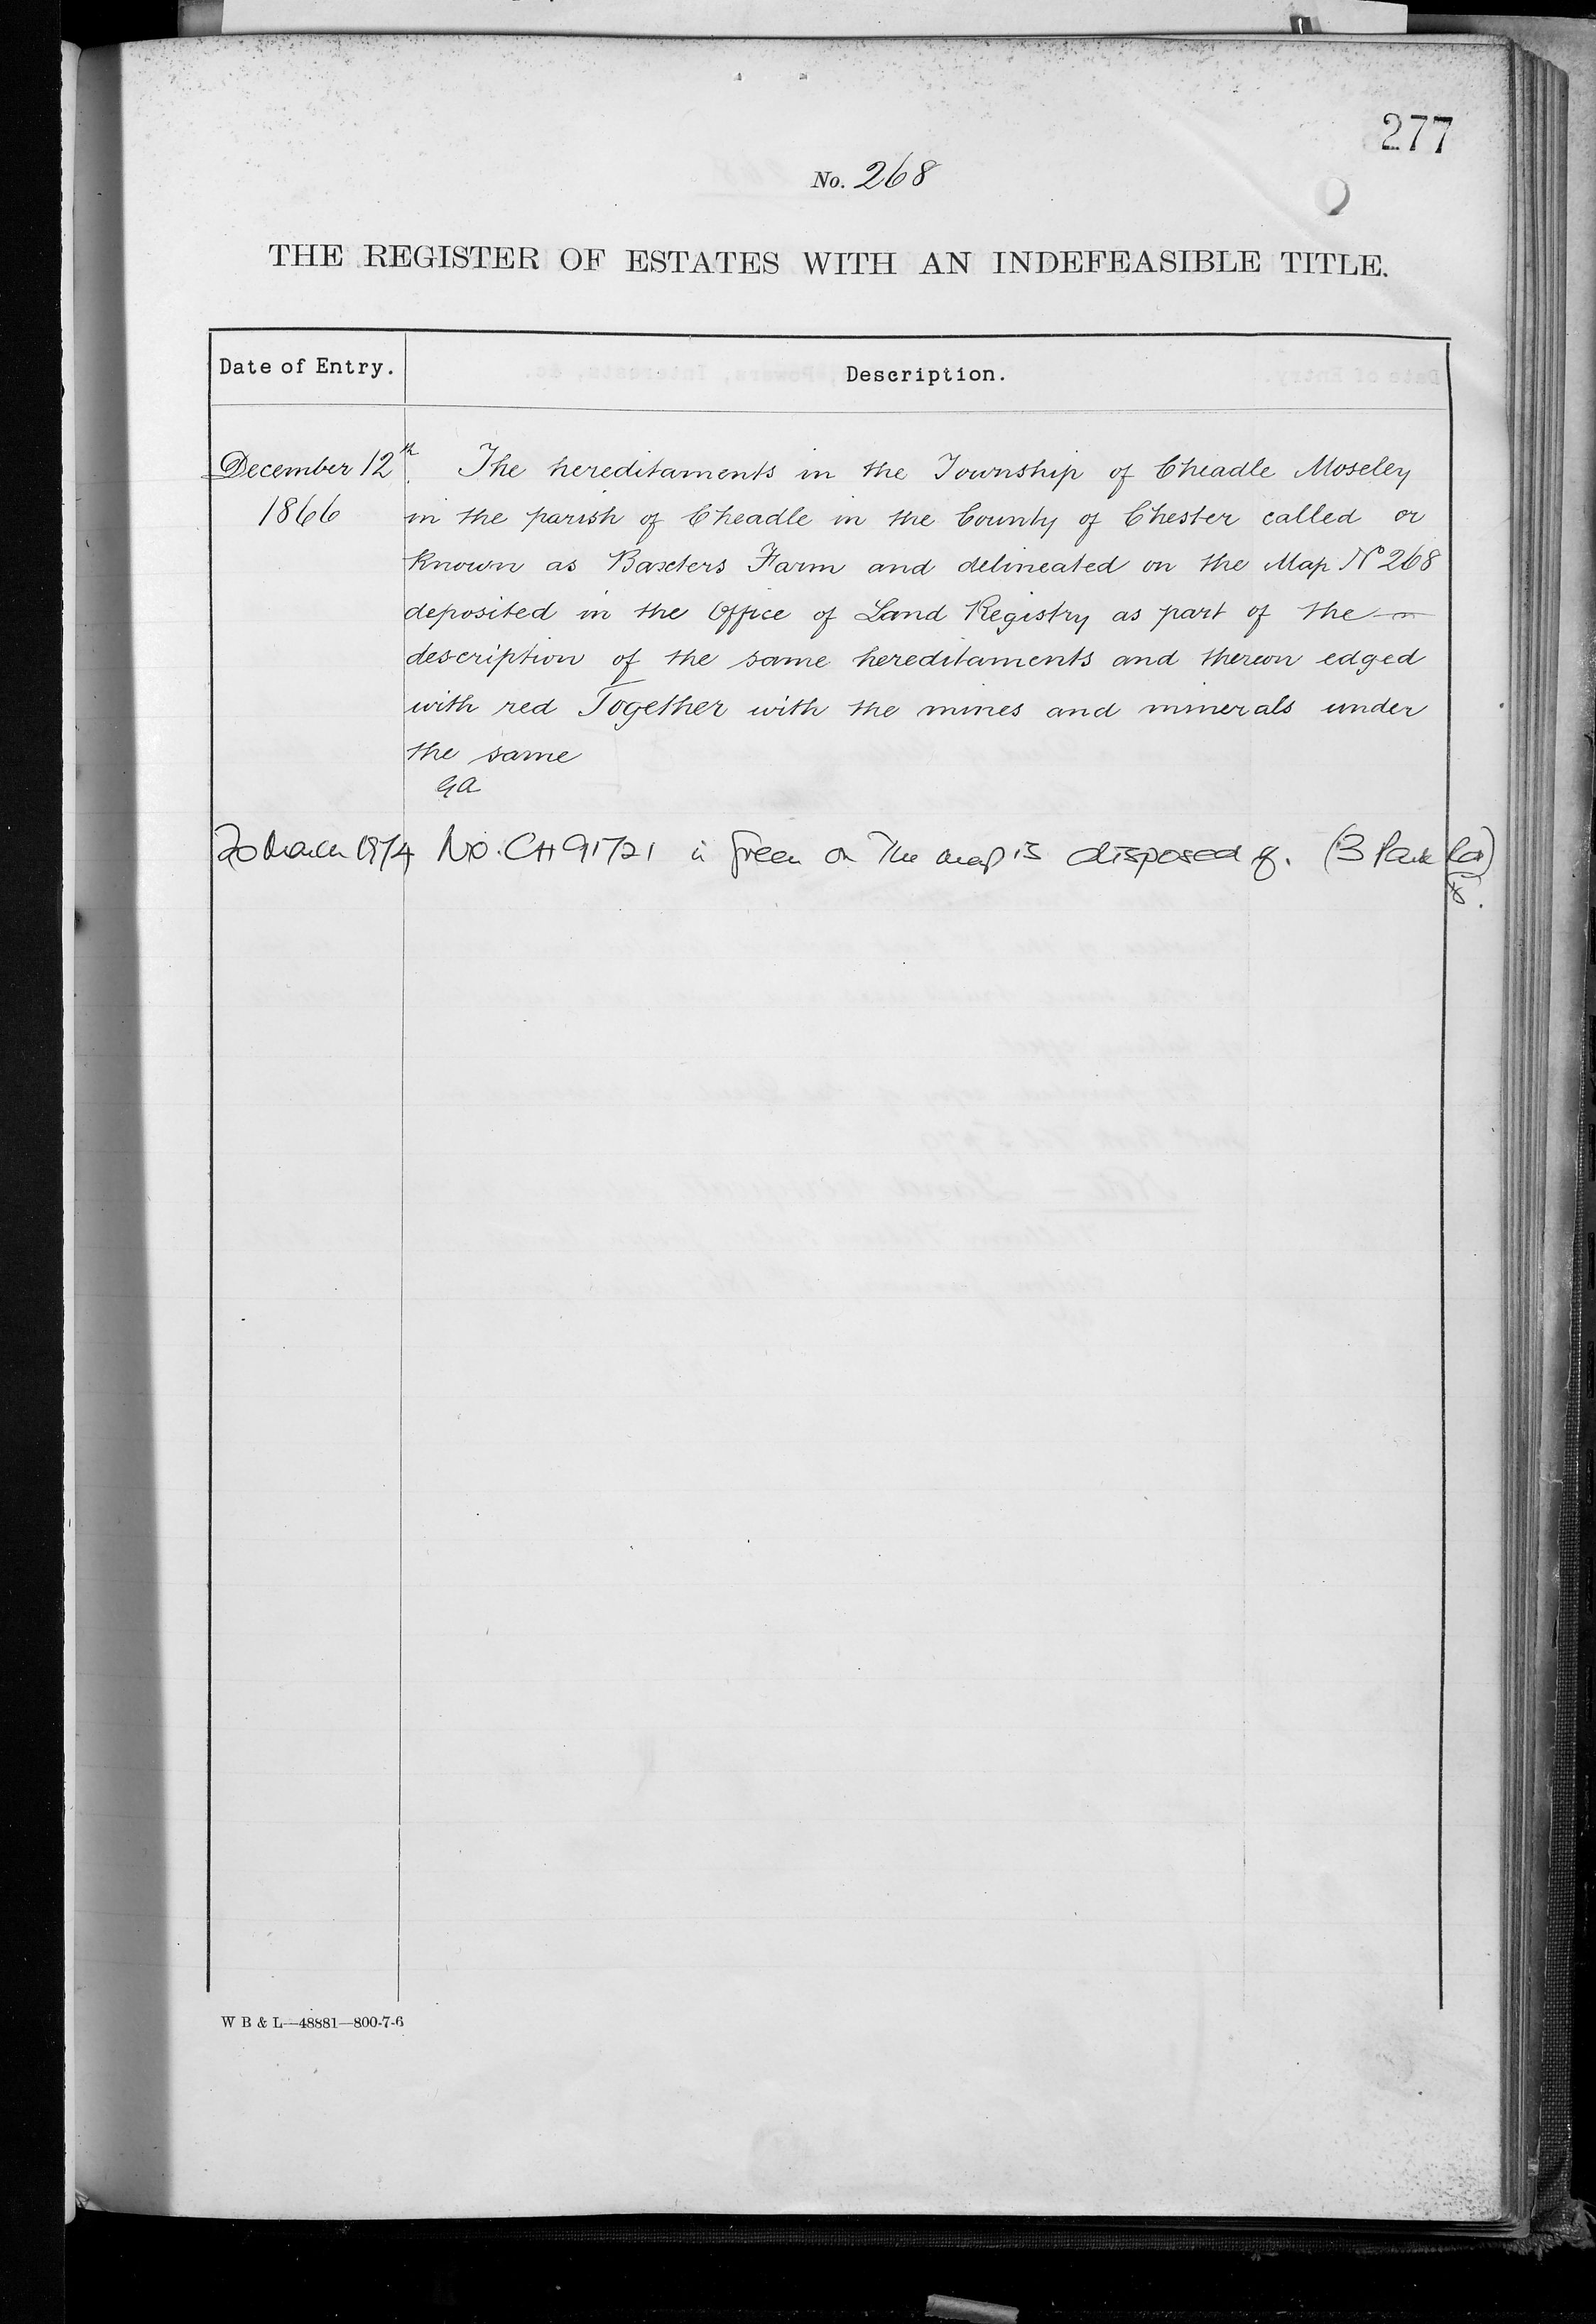 277
No. 268
THE REGISTER OF ESTATES WITH AN INDEFEASIBLE TITLE.
Date of Entry.
Description.
December 12th
1866
The hereditaments in the Township of Cheadle Moseley
in the parish of Cheadle in the County of Chester called or
known as Baxters Farm and delineated on the Map No 268
deposited in the Office of Land Registry as part of the
description of the same hereditaments and thereon edged
with red Together with the mines and minerals under
the same
GA
20 March 1974 No. CH 91721 in Green on The map is disposed of. (3 Park Rd)
W B & L—48881—800-7-6